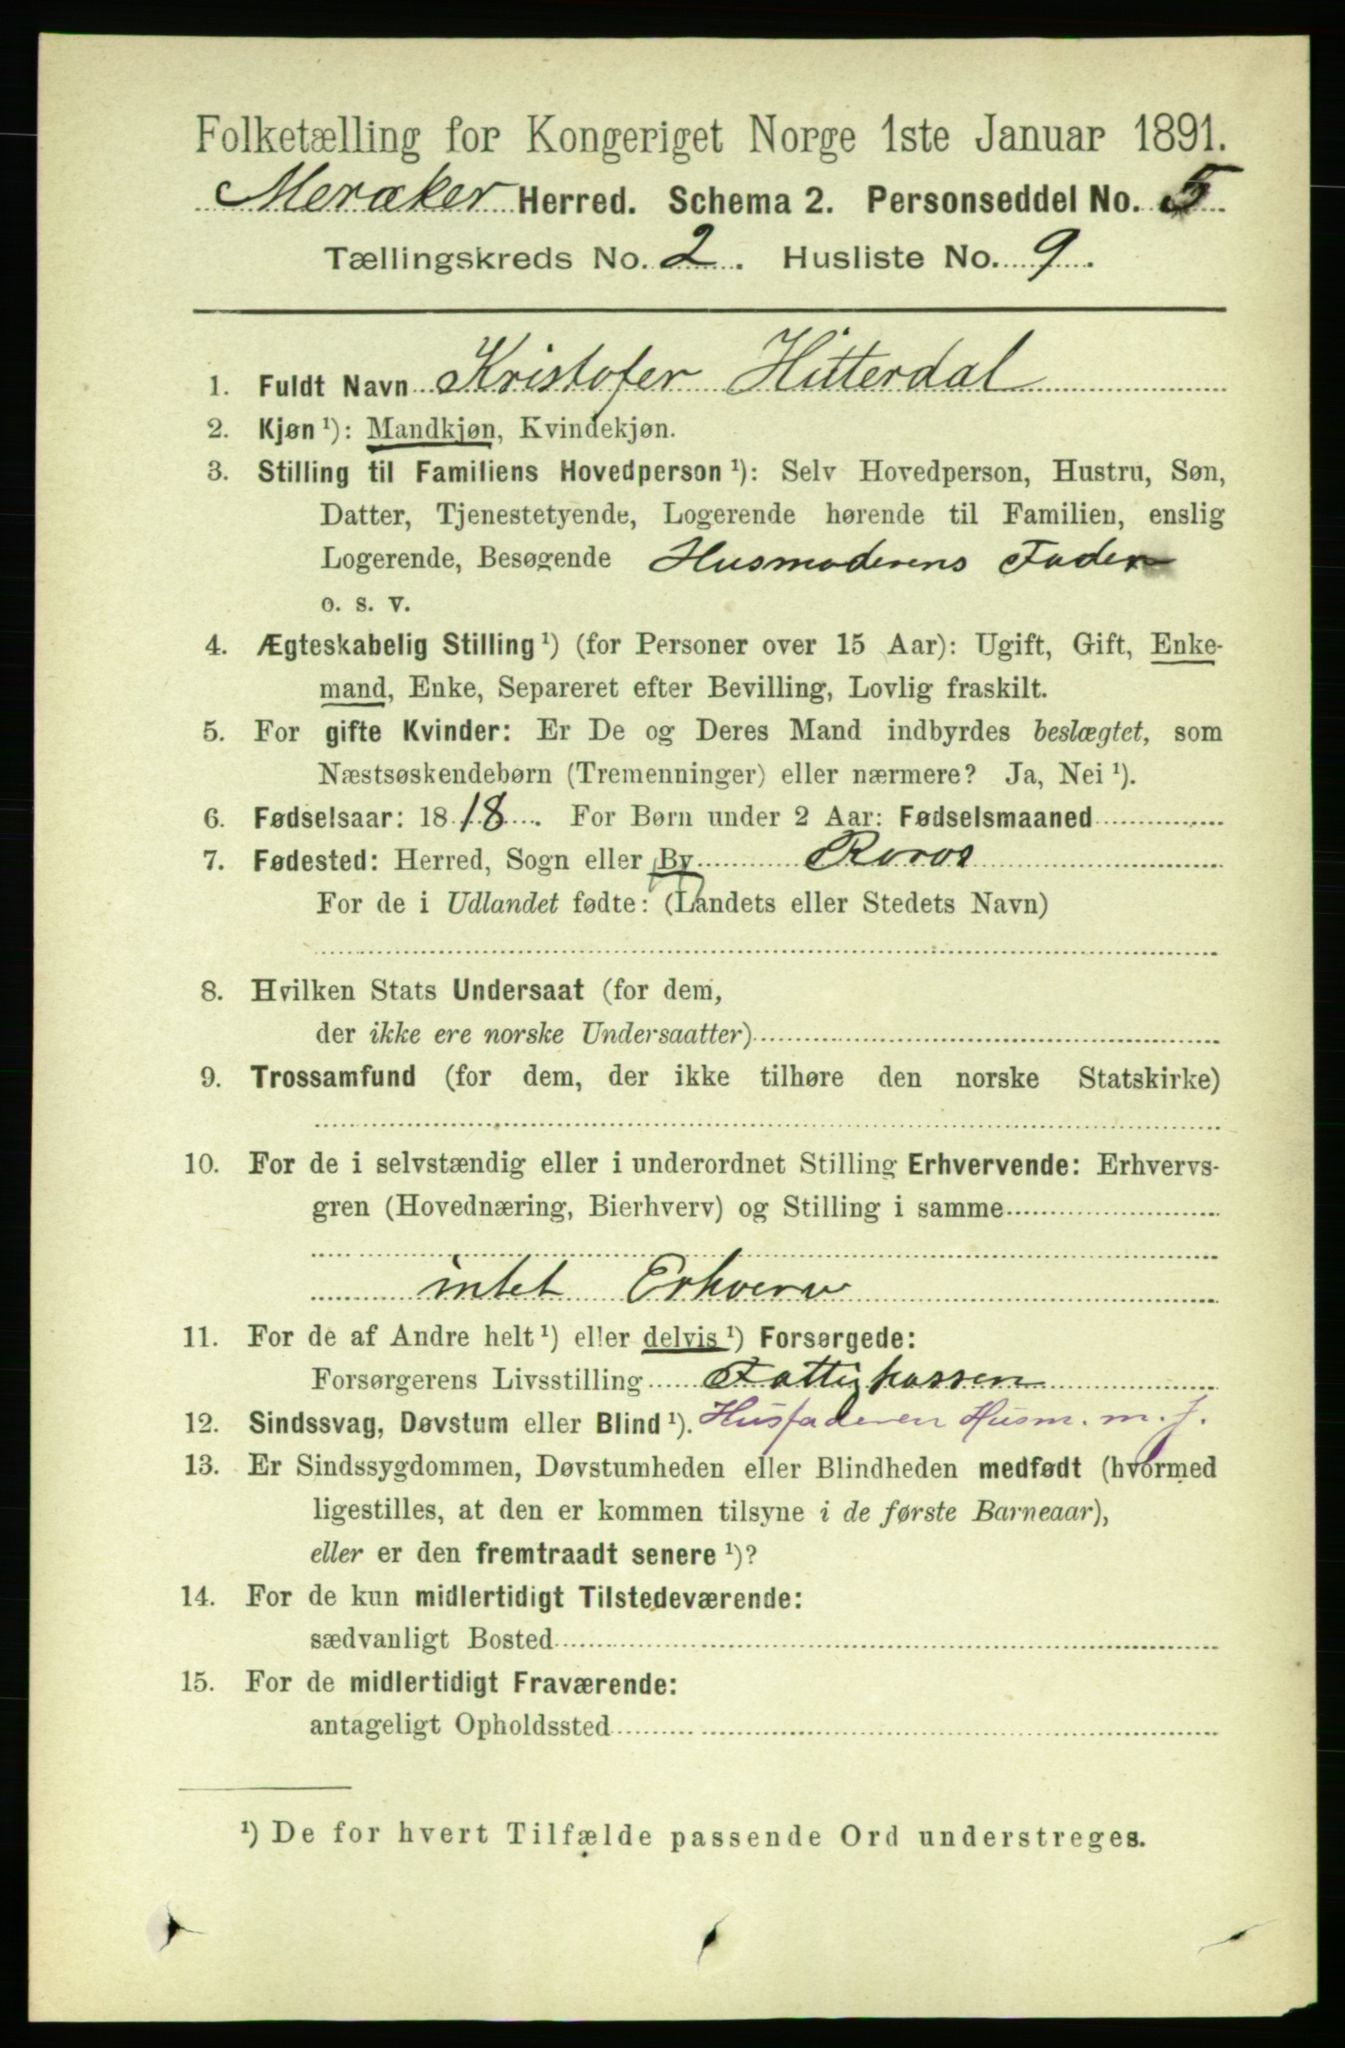 Folketælling for Kongeriget Norge 1ste Januar 1891.
Meraker Herred. Schema 2. Personseddel No. 5
Tællingskreds No. 2. Husliste No. 9.
1. Fuldt Navn Kristofer Hitterdal
2. Kjøn ¹): Mandkjøn, Kvindekjøn.
3. Stilling til Familiens Hovedperson ¹): Selv Hovedperson, Hustru, Søn,
Datter, Tjenestetyende, Logerende hørende til Familien, enslig
Logerende, Besøgende Husmoderens Fader
o. s. v.
4. Ægteskabelig Stilling ¹) (for Personer over 15 Aar): Ugift, Gift, Enke-
mand, Enke, Separeret efter Bevilling, Lovlig fraskilt.
5. For gifte Kvinder: Er De og Deres Mand indbyrdes beslægtet, som
Næstsøskendebørn (Tremenninger) eller nærmere? Ja, Nei ¹).
6. Fødselsaar: 1818. For Børn under 2 Aar: Fødselsmaaned
7. Fødested: Herred, Sogn eller By Roros
For de i Udlandet fødte: (Landets eller Stedets Navn)
8. Hvilken Stats Undersaat (for dem,
der ikke ere norske Undersaatter)
9. Trossamfund (for dem, der ikke tilhøre den norske Statskirke)
10. For de i selvstændig eller i underordnet Stilling Erhvervende: Erhvervs-
gren (Hovednæring, Bierhverv) og Stilling i samme
intet Erhverv
11. For de af Andre helt ¹) eller delvis ¹) Forsørgede:
Forsørgerens Livsstilling Fattigkassen
12. Sindssvag, Døvstum eller Blind ¹). Husfaderen Husm. m. J.
13. Er Sindssygdommen, Døvstumheden eller Blindheden medfødt (hvormed
ligestilles, at den er kommen tilsyne i de første Barneaar),
eller er den fremtraadt senere ¹)?
14. For de kun midlertidigt Tilstedeværende:
sædvanligt Bosted
15. For de midlertidigt Fraværende:
antageligt Opholdssted
¹) De for hvert Tilfælde passende Ord understreges.